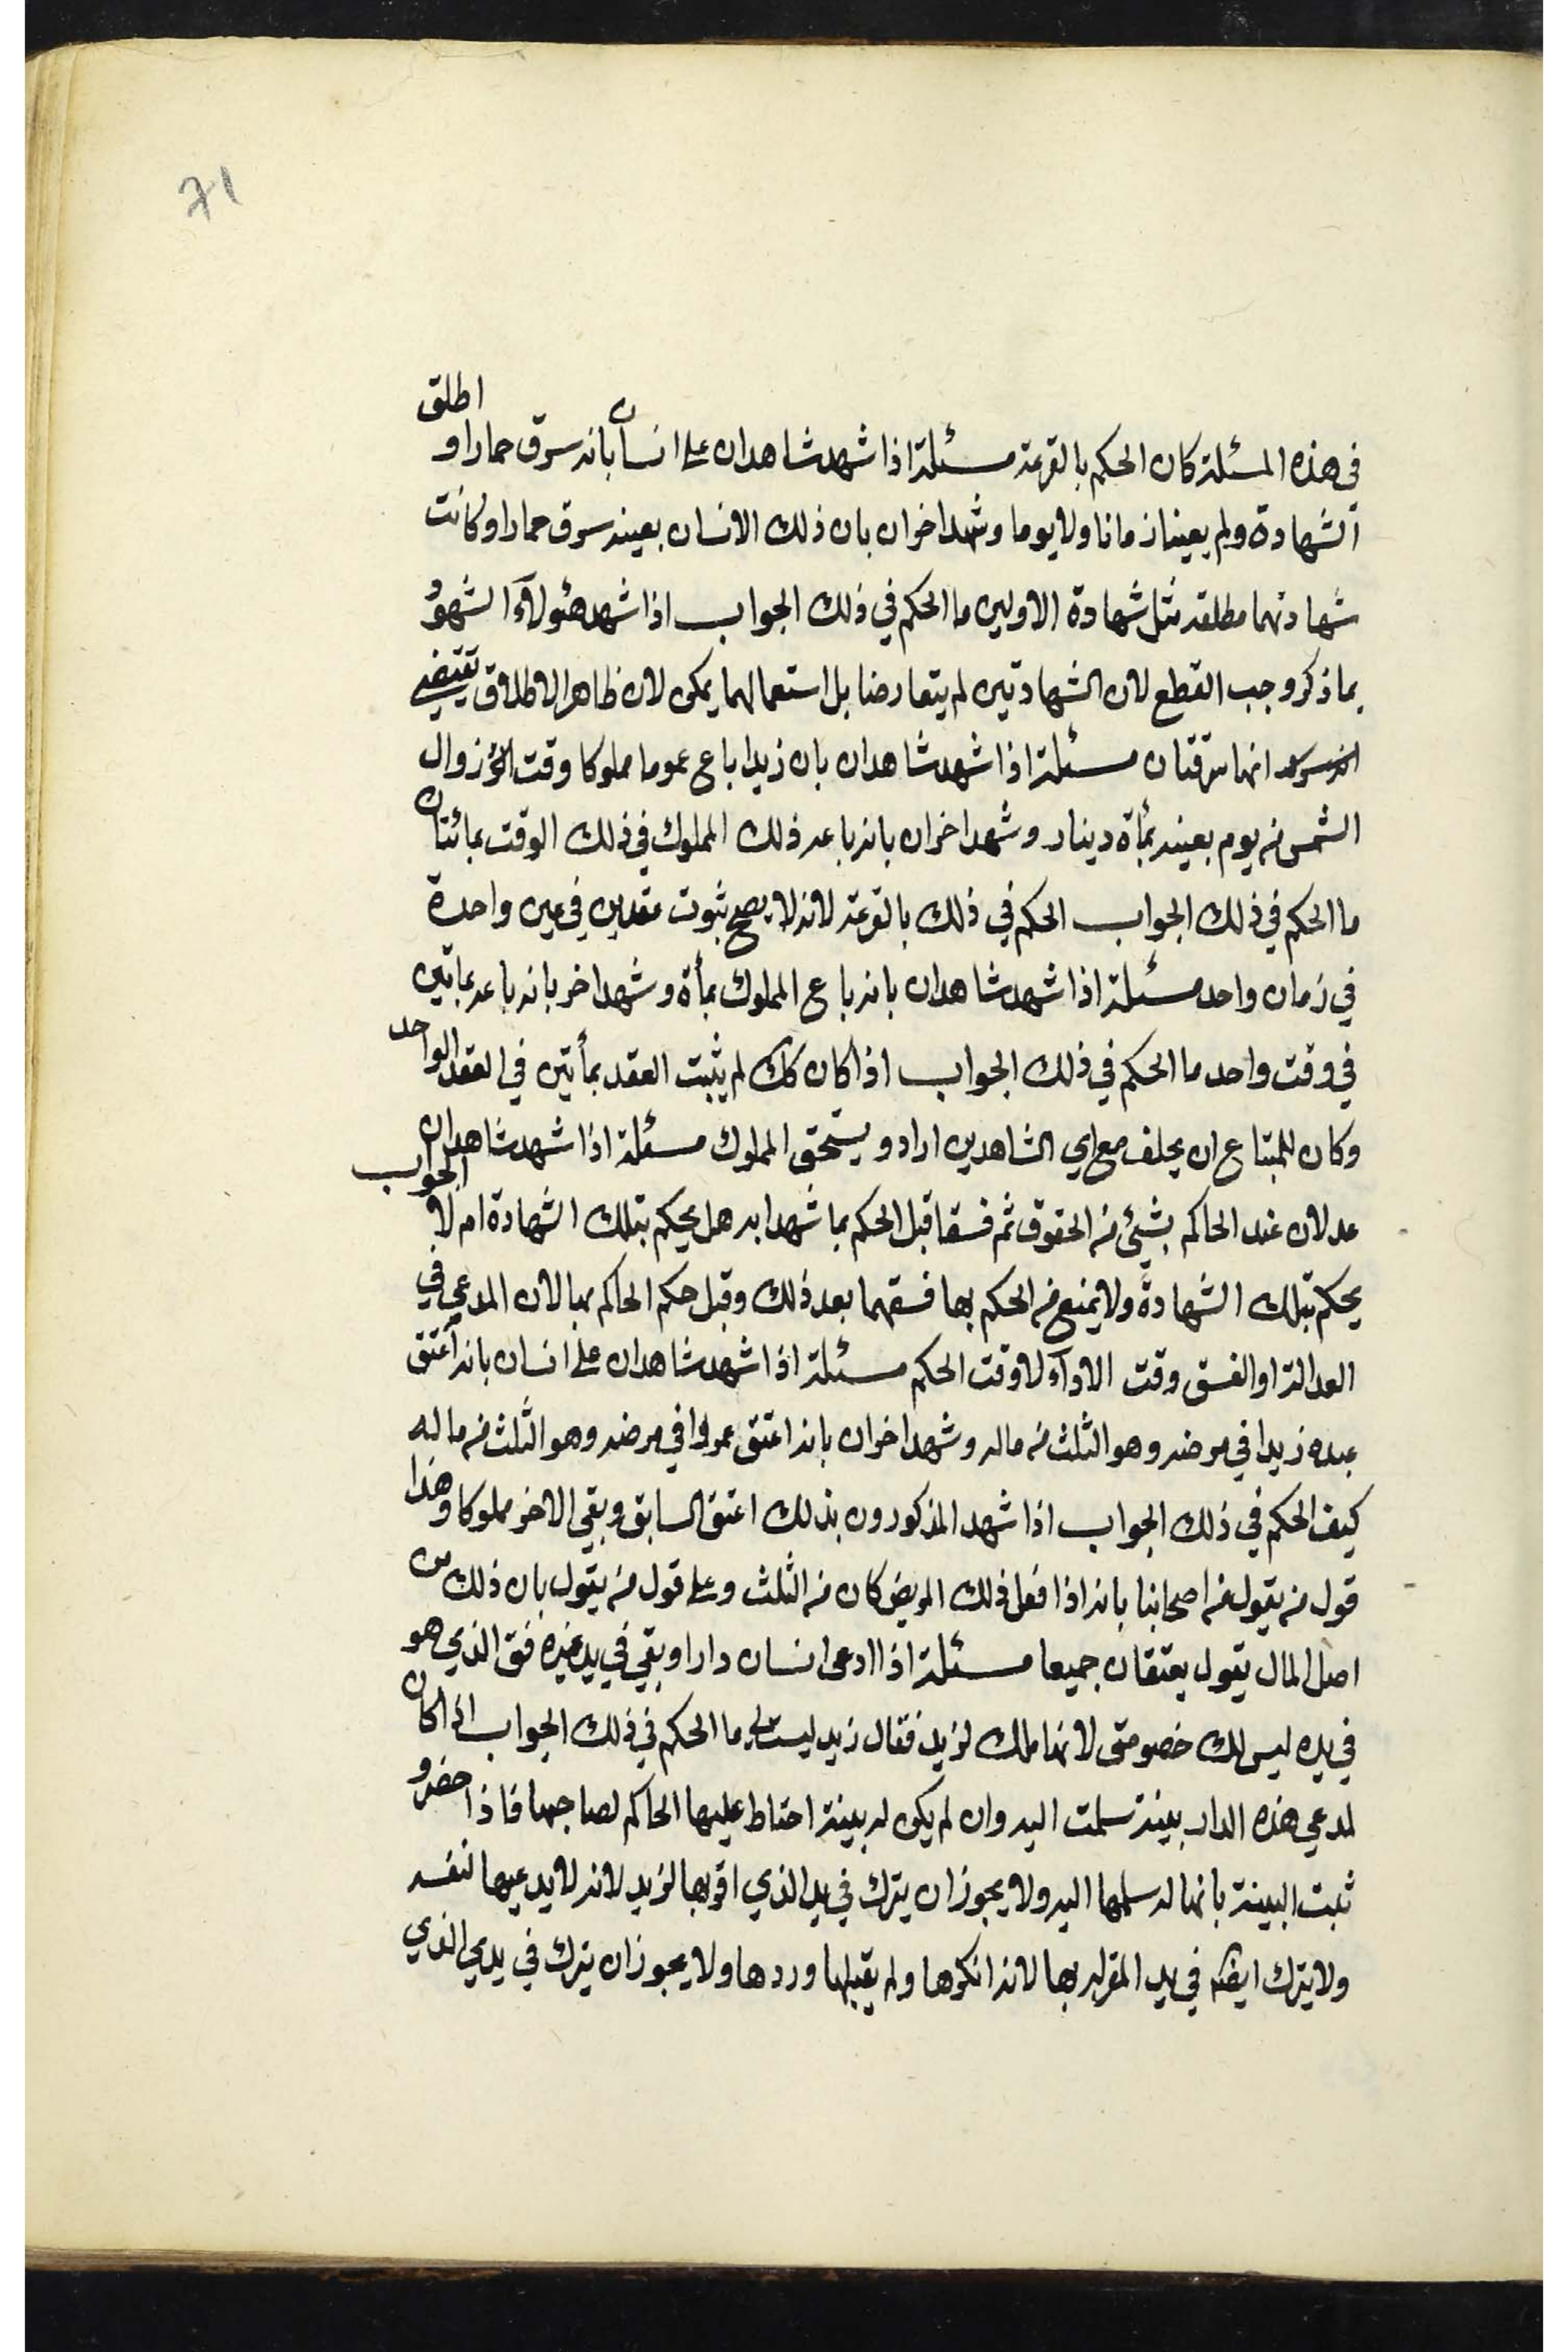 71
في هذه المسئلة كان الحكم بالقرعة مسئلة اذا شهد شاهدان على انسان بانه سرق حمارا و اطلق
الشهادة ولم يعينا زمانا ولا يوما وشهد اخران بان ذلك الانسان بعينه سرق حمارا وكانت
شهادتهما مطلقة مثل شهادة الاولين ما الحكم في ذلك الجواب اذا شهد هئولآء الشهود
بما ذكر وجب القطع لان الشهادتين لم يتعارضا بل استعمالهما يمكن لان ظاهر الاطلاق يقتضي
انهما سرقتان مسئلة اذا شهد شاهدان بان زيدا باع عموما مملوكا وقت زوال
الشمس من يوم بعينه بمأة دينار وشهد اخران بانه باعه ذلك المملوك في ذلك الوقت بمائتان
ما الحكم في ذلك الجواب الحكم في ذلك بالقرعة لانه لا يصح ثبوت عقدين في عين واحدة
في زمان واحد مسئلة اذا شهد شاهدان بانه باع المملوك بمأة وشهد اخر بانه باعه بماتين
في وقت واحد ما الحكم في ذلك الجواب اذا كان كك لم يثبت العقد بمأتين في العقد الواحد
وكان للمبتاع ان يحلف مع اي الشاهدين اراد ويستحق المملوك مسئلة اذا شهد شاهدان
عدلان عند الحاكم بشيئ من الحقوق ثم فسقا قبل الحكم بما شهدا به هل يحكم بتلك الشهادة ام لا الجواب
يحكم بتلك الشهادة ولا يمنع من الحكم بها فسقهما بعد ذلك وقبل حكم الحاكم بها لان المدعي في
العدالة او الفسق وقت الادآء لا وقت الحكم مسئلة اذا شهد شاهدان على انسان بانه أعتق
عبده زيدا في مرضه وهو الثلث من ماله وشهد اخران بانه اعتق عمروا في مرضه وهو الثلث من ماله
كيف الحكم في ذلك الجواب اذا شهد المذكورون بذلك اعتق السابق وبقي الاخر مملوكا وهذا
قول من يقول من اصحابنا بانه اذا فعل ذلك المريض كان من الثلث وعلى قول من يقول بان ذلك من
اصل المال يقول يعتقان جميعا مسئلة اذا ادعى انسان دارا وبقي في يد غيره فق الذي هو
في يده ليس لك خصومتى لانها ملك لزيد فقال زيد ليست لي ما الحكم في ذلك الجواب اذا كان
لمدعي هذه الدار بينة سلمت اليه وان لم يكن له بينة احتاط عليها الحاكم لصاحبها فاذا حضر و
ثبت البينة بانها له سلمها اليه ولا يجوز ان يترك في يد الذي اقر بها لزيد لانه لا يدعيها لنفسه
ولا يترك ايضا في يد المقر له بها لانه انكرها ولم يقبلها وردها ولا يجوز ان يترك في يدي الذي